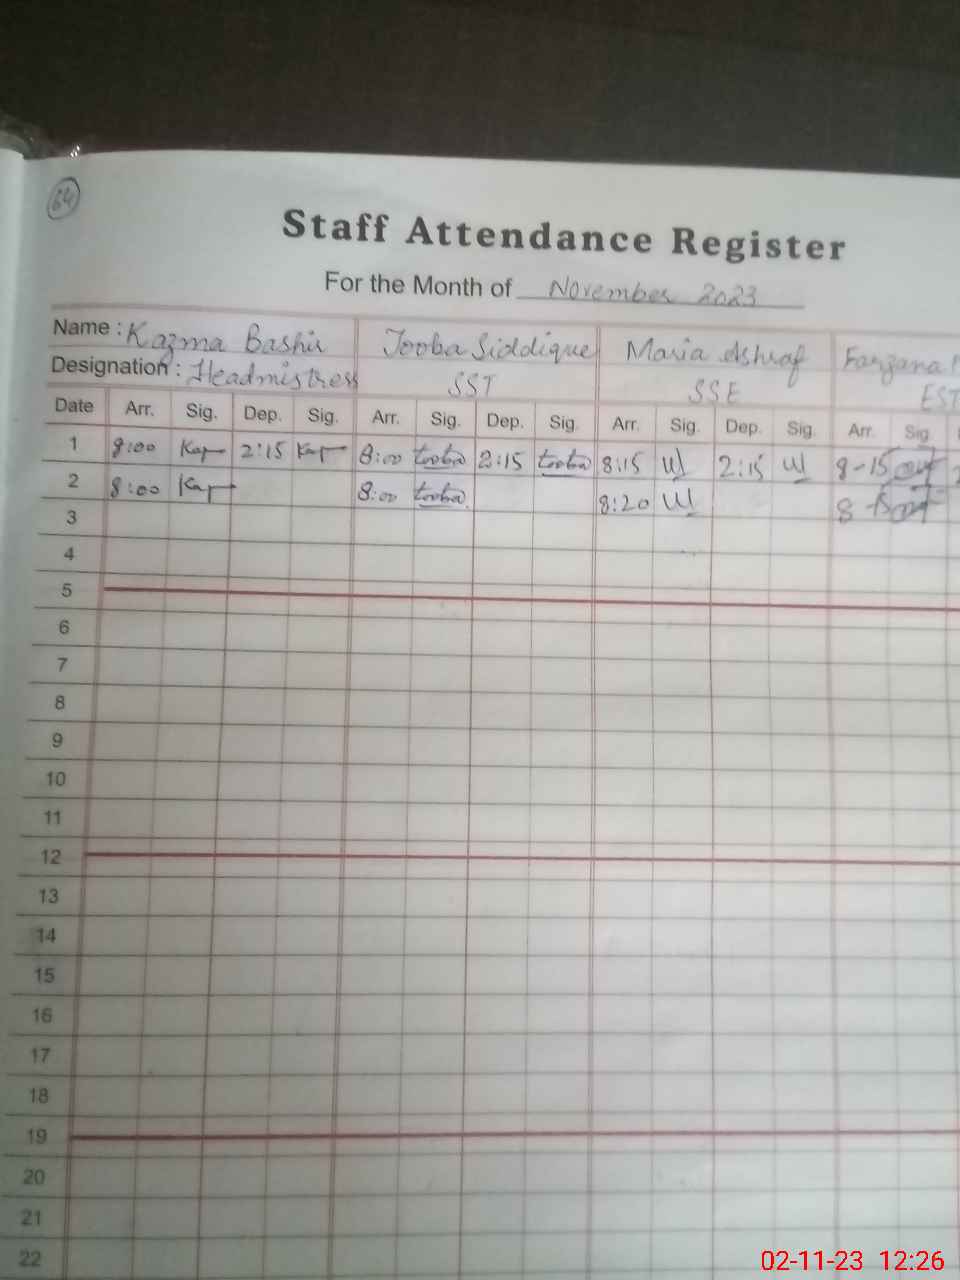 64
Staff Attendance Register
For the Month of November 2023
Name : Kazma Bashir Tooba Siddique Maria Ashraf Farzana
Designation : Headmistress SST SSE EST
Date Arr. Sig. Dep. Sig. Arr. Sig. Dep. Sig. Arr. Sig. Dep. Sig. Arr. Sig.
1 8:00 2:15 8:00 tooba 2:15 tooba 8:15 2:15 8-15
2 8:00 8:00 tooba 8:20 8
3
4
5
6
7
8
9
10
11
12
13
14
15
16
17
18
19
20
21
22
02-11-23 12:26